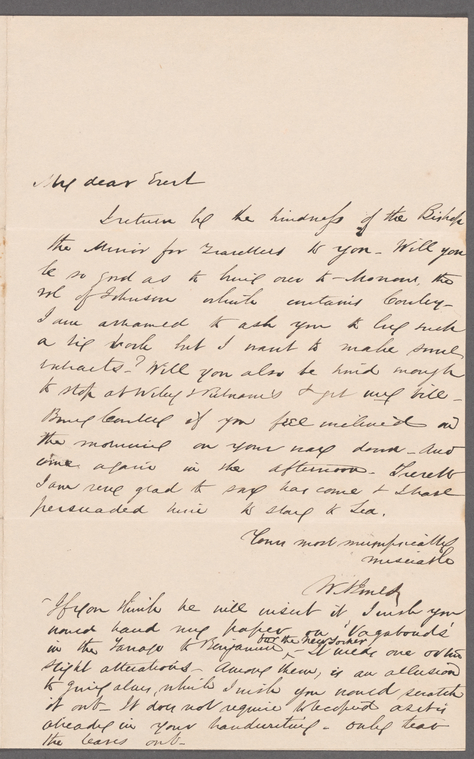 My dear Evert
I return by the kindness of the Bishop
the Mirror for Travellers to you - Will you
be so good as to bring over to-morrow, the
vol of Johnson which contains Cowley -
I am ashamed to ask you to lug such
a big work but I want to make some
extracts - Will you also be kind enough
to stop at Wiley & Putnam's & get my bill -
Bring Cowley if you feel inclined in
the morning on your way down - and
come again in the afternoon.
I am very glad to say has come & I have
persuaded him to stay to tea.
Yours most
miserable
If you think he will insert it I wish you
would hand my paper on 'Vagabonds'
in the to Benjamin for the New Yorker - It needs one or two
slight alterations - Among them, is an allusion
to giving alms, which I wish you would scratch
it out - It does not require to be copied as it is
already in your handwriting - only tear
the leaves out -